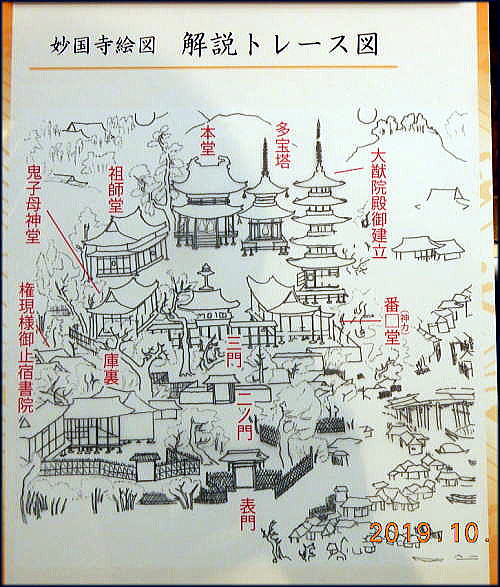 妙国寺絵図 解説トレース図
本堂
多宝塔
大猷院殿御建立
祖師堂
鬼子母神堂
権現様御止宿書院
庫裏
三門
二ノ門
表門
番□堂
(神力)
2019 10.